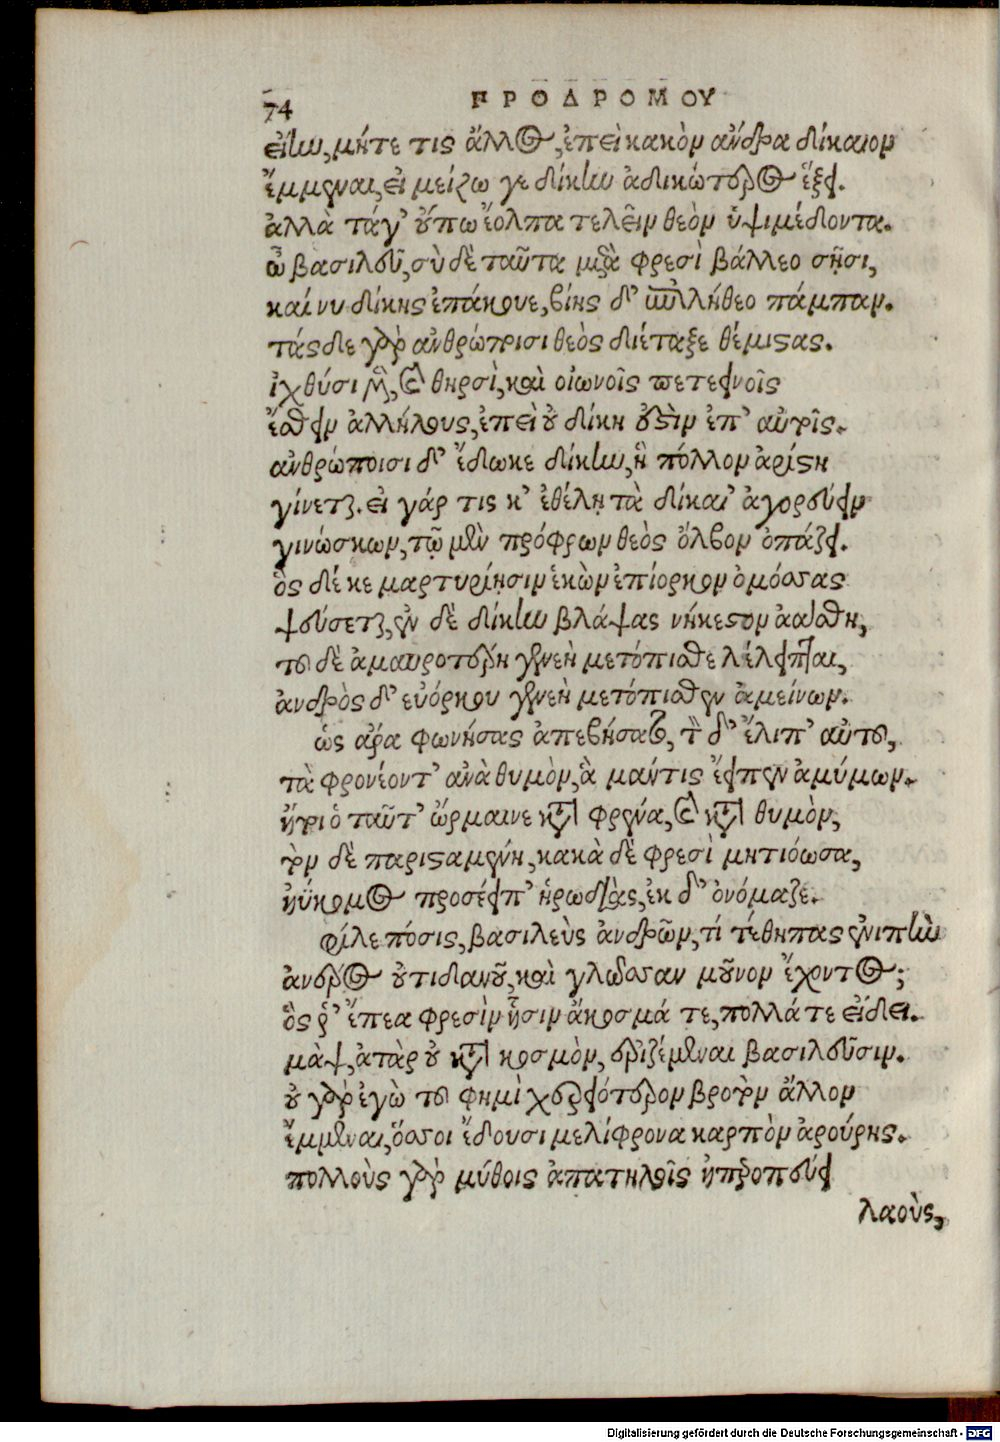 74
ΠΡΟΔΡΟΜΟΥ
εἴην, μήτε τις ἄλλος, ἐπεὶ κακὸν ἄνδρα δίκαιον
ἔμμεναι, εἰ μείζω γε δίκην ἀδικώτερος ἕξει.
ἀλλὰ τάγ' οὔπω ἔολπα τελεῖν θεὸν ὑψιμέδοντα.
ὦ βασιλεῦ, σὺ δὲ ταῦτα μετὰ φρεσὶ βάλλεο σῇσι,
καί νυ δίκης ἐπάκουε, βίης δ' ἐπιλήθεο πάμπαν.
τάςδε γὰρ ἀνθρώποισι θεὸς διέταξε θέμιστας.
ἰχθύσι μὲν, καὶ θηρσὶ, καὶ οἰωνοῖς πετεεινοῖς
ἔσθειν ἀλλήλους, ἐπεὶ οὐ δίκη οὐδὲν ἐπ' αὐτοῖς.
ἀνθρώποισι δ' ἔδωκε δίκην, ἣ πόλλον ἀρίστη
γίνεται. εἰ γάρ τις κ' ἐθέλῃ τὰ δίκαι' ἀγορεύειν
γινώσκων, τῷ μὲν πρόφρων θεὸς ὄλβον ὀπάζει.
ὃς δέ κε μαρτυρίῃσιν ἑκὼν ἐπίορκον ὀμόσσας
ψεύσεται, ἐν δὲ δίκην βλάψας νήκεστον ἀάσθη,
τοῦ δὲ ἀμαυροτέρη γενεὴ μετόπισθε λέλειπται,
ἀνδρὸς δ' εὐόρκου γενεὴ μετόπισθεν ἀμείνων.
ὡς ἄρα φωνήσας ἀπεβήσατο, τὸν δ' ἔλιπ' αὐτοῦ,
τὰ φρονέοντ' ἀνὰ θυμὸν, ἃ μάντις ἔειπεν ἀμύμων.
ἤτοι ὁ ταῦτ' ὥρμαινε κατὰ φρένα, καὶ κατὰ θυμὸν,
τὸν δὲ παρισταμένη, κακὰ δὲ φρεσὶ μητιόωσα,
ἠΰκομος προσέειπ' ἡρωδιὰς, ἐκ δ' ὀνόμαζε.
φίλε πόσις, βασιλεὺς ἀνδρῶν, τί τέθηπας ἐνιπὴν
ἀνέρος οὐτιδανοῦ, καὶ γλῶσσαν μοῦνον ἔχοντος;
ὅς ῥ' ἔπεα φρεσὶν ᾗσιν ἄκοσμά τε, πολλά τε εἴδει.
μὰψ, ἀτὰρ οὐ κατὰ κοσμὸν, ἐριζέμεναι βασιλεῦσιν.
οὐ γὰρ ἐγὼ τοῦ φημὶ χερειότερον βροτὸν ἄλλον
ἔμμεναι, ὅσσοι ἔδουσι μελίφρονα καρπὸν ἀρούρης.
πολλοὺς γὰρ μύθοις ἀπατηλοῖς ἠπεροπεύει
λαοὺς,
Digitalisierung gefördert durch die Deutsche Forschungsgemeinschaft - DFG